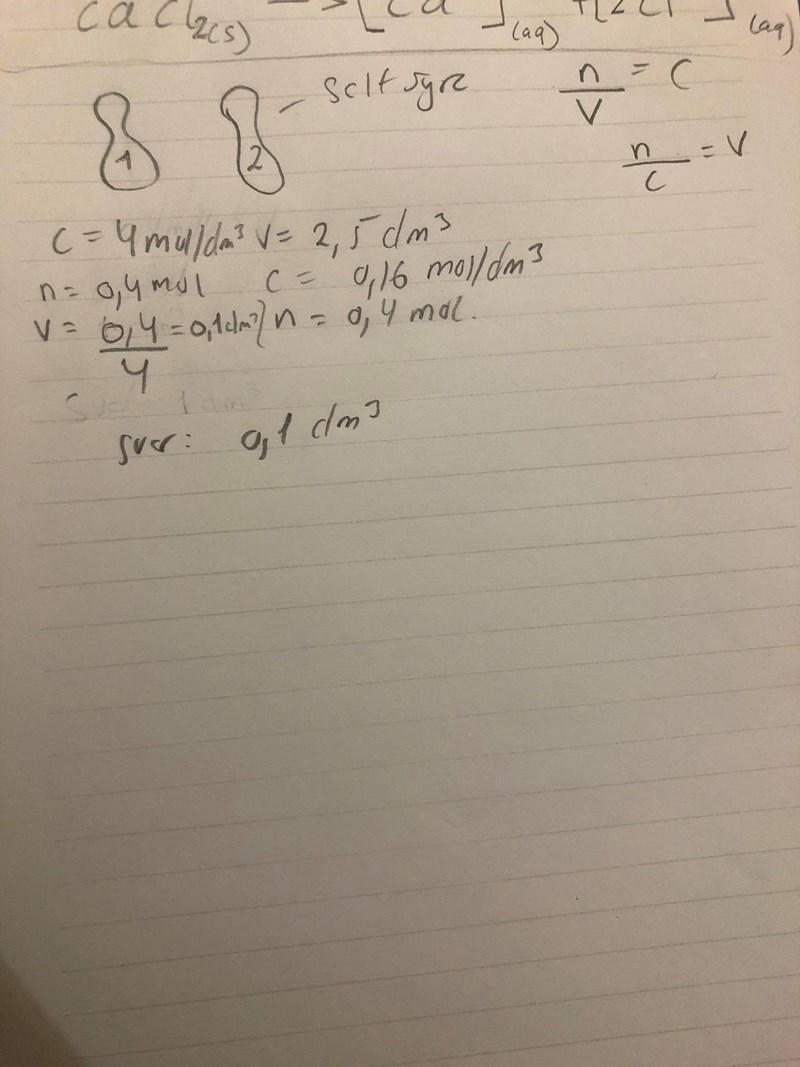 CaCl2(s) → [Ca ](aq) + [2Cl ](aq)
1 2 saltsyra n/V = C
n/C = V
C = 4 mol/dm³ V = 2,5 dm³
n = 0,4 mol C = 0,16 mol/dm³
V = 0,4/4 = 0,1 dm³ n = 0,4 mol.
svar: 0,1 dm³